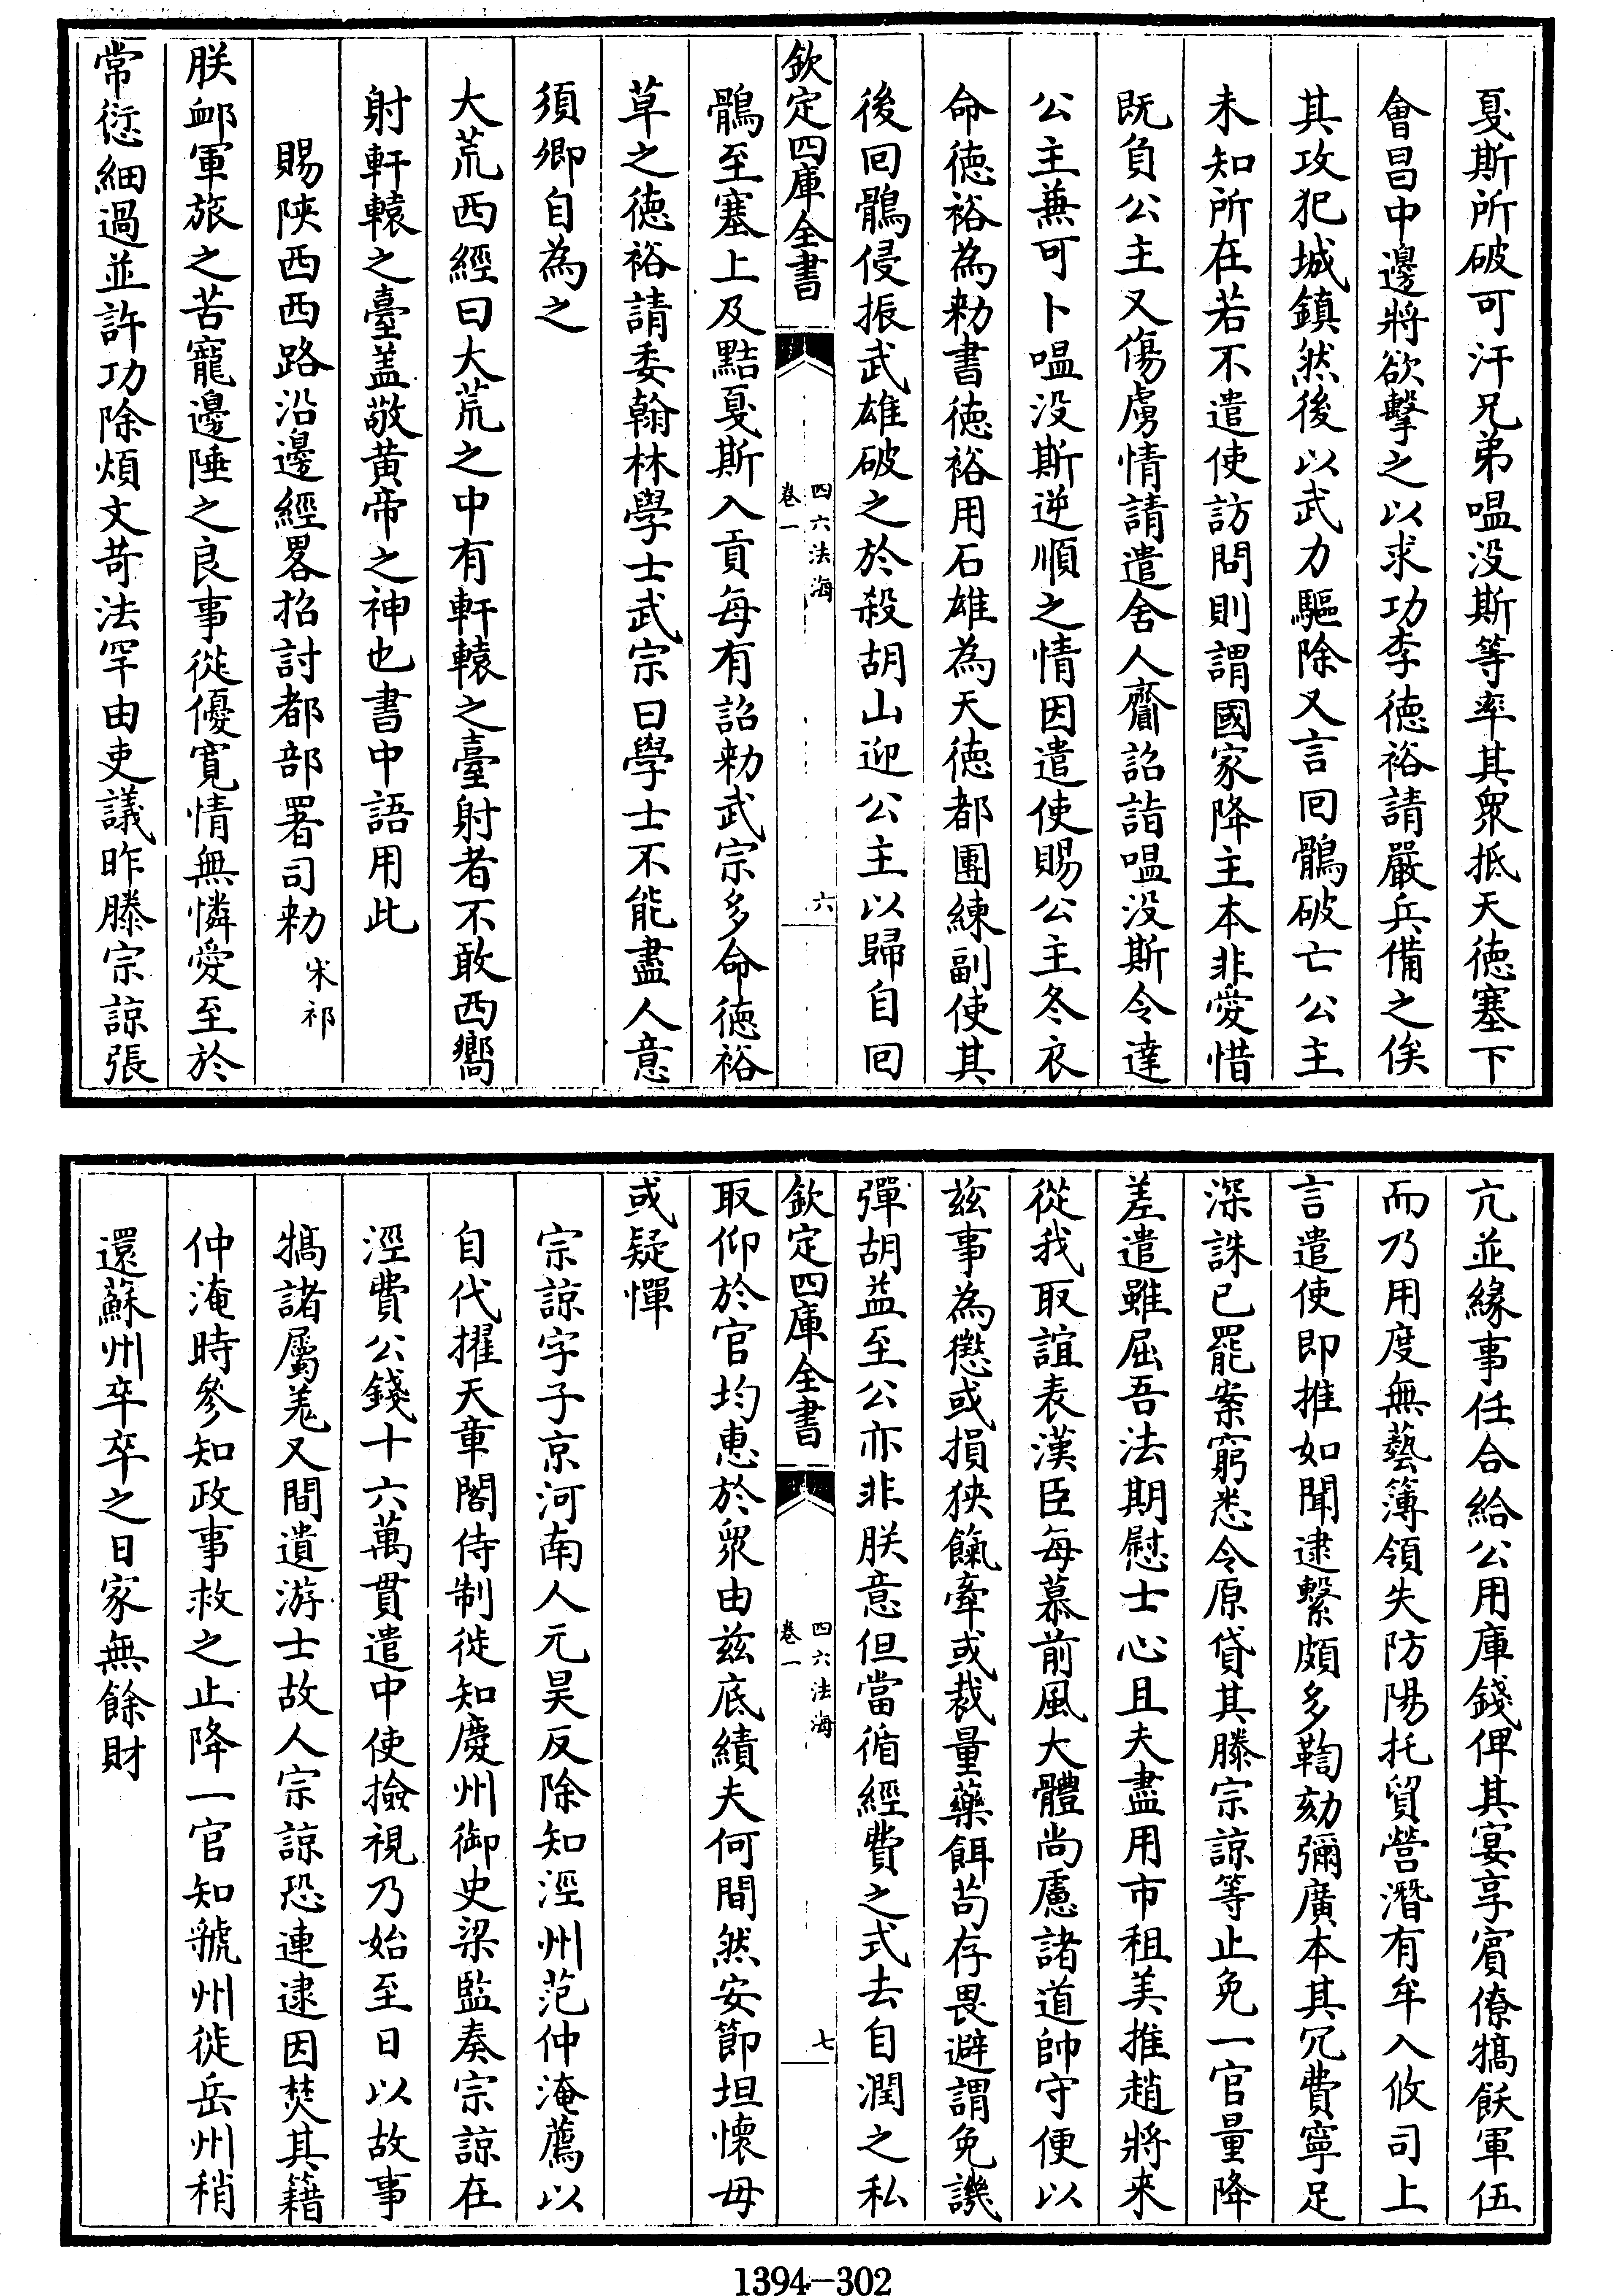 戛斯所破可汗兄弟嗢没斯等率其衆抵天徳塞下
㑹昌中邊將欲擊之以求功李徳裕請嚴兵備之俟
其攻犯城鎮然後以武力驅除又言囘鶻破亡公主
未知所在若不遣使訪問則謂國家降主本非愛惜
既負公主又傷虜情請遣舍人齎詔詣嗢没斯令達
公主兼可卜嗢没斯逆順之情因遣使賜公主冬衣
命徳裕為勅書徳裕用石雄為天徳都團練副使其
後囘鶻侵振武雄破之於殺胡山迎公主以歸自囘
欽定四庫全書
四六法海
卷一
六
鶻至塞上及黠戛斯入貢每有詔勅武宗多命徳裕
草之徳裕請委翰林學士武宗曰學士不能盡人意
須卿自為之
大荒西經曰大荒之中有軒轅之臺射者不敢西嚮
射軒轅之臺盖敬黄帝之神也書中語用此
賜陜西西路沿邊經畧招討都部署司勅 宋祁
朕䘏軍旅之苦寵邊陲之良事從優寛情無憐愛至於
常愆細過並許功除煩文苛法罕由吏議昨滕宗諒張
亢並緣事任合給公用庫錢俾其宴享賓僚犒飫軍伍
而乃用度無藝簿領失防陽托貿營潛有牟入攸司上
言遣使即推如聞逮繫頗多鞫劾彌廣本其冗費寧足
深誅已罷案窮悉令原貸其滕宗諒等止免一官量降
差遣雖屈吾法期慰士心且夫盡用市租美推趙將来
從我取誼表漢臣每慕前風大體尚慮諸道帥守便以
兹事為懲或損狹餼牽或裁量藥餌茍存畏避謂免譏
彈胡益至公亦非朕意但當循經費之式去自潤之私
欽定四庫全書
四六法海
卷一
七
取仰於官均惠於衆由兹底績夫何間然安節坦懷毋
或疑憚
宗諒字子京河南人元昊反除知涇州范仲淹薦以
自代擢天章閣待制徙知慶州御史梁監奏宗諒在
涇費公錢十六萬貫遣中使撿視乃始至日以故事
犒諸屬羌又間遺游士故人宗諒恐連逮因焚其籍
仲淹時參知政事救之止降一官知虢州徙岳州稍
還蘇州卒卒之日家無餘財
1394-302